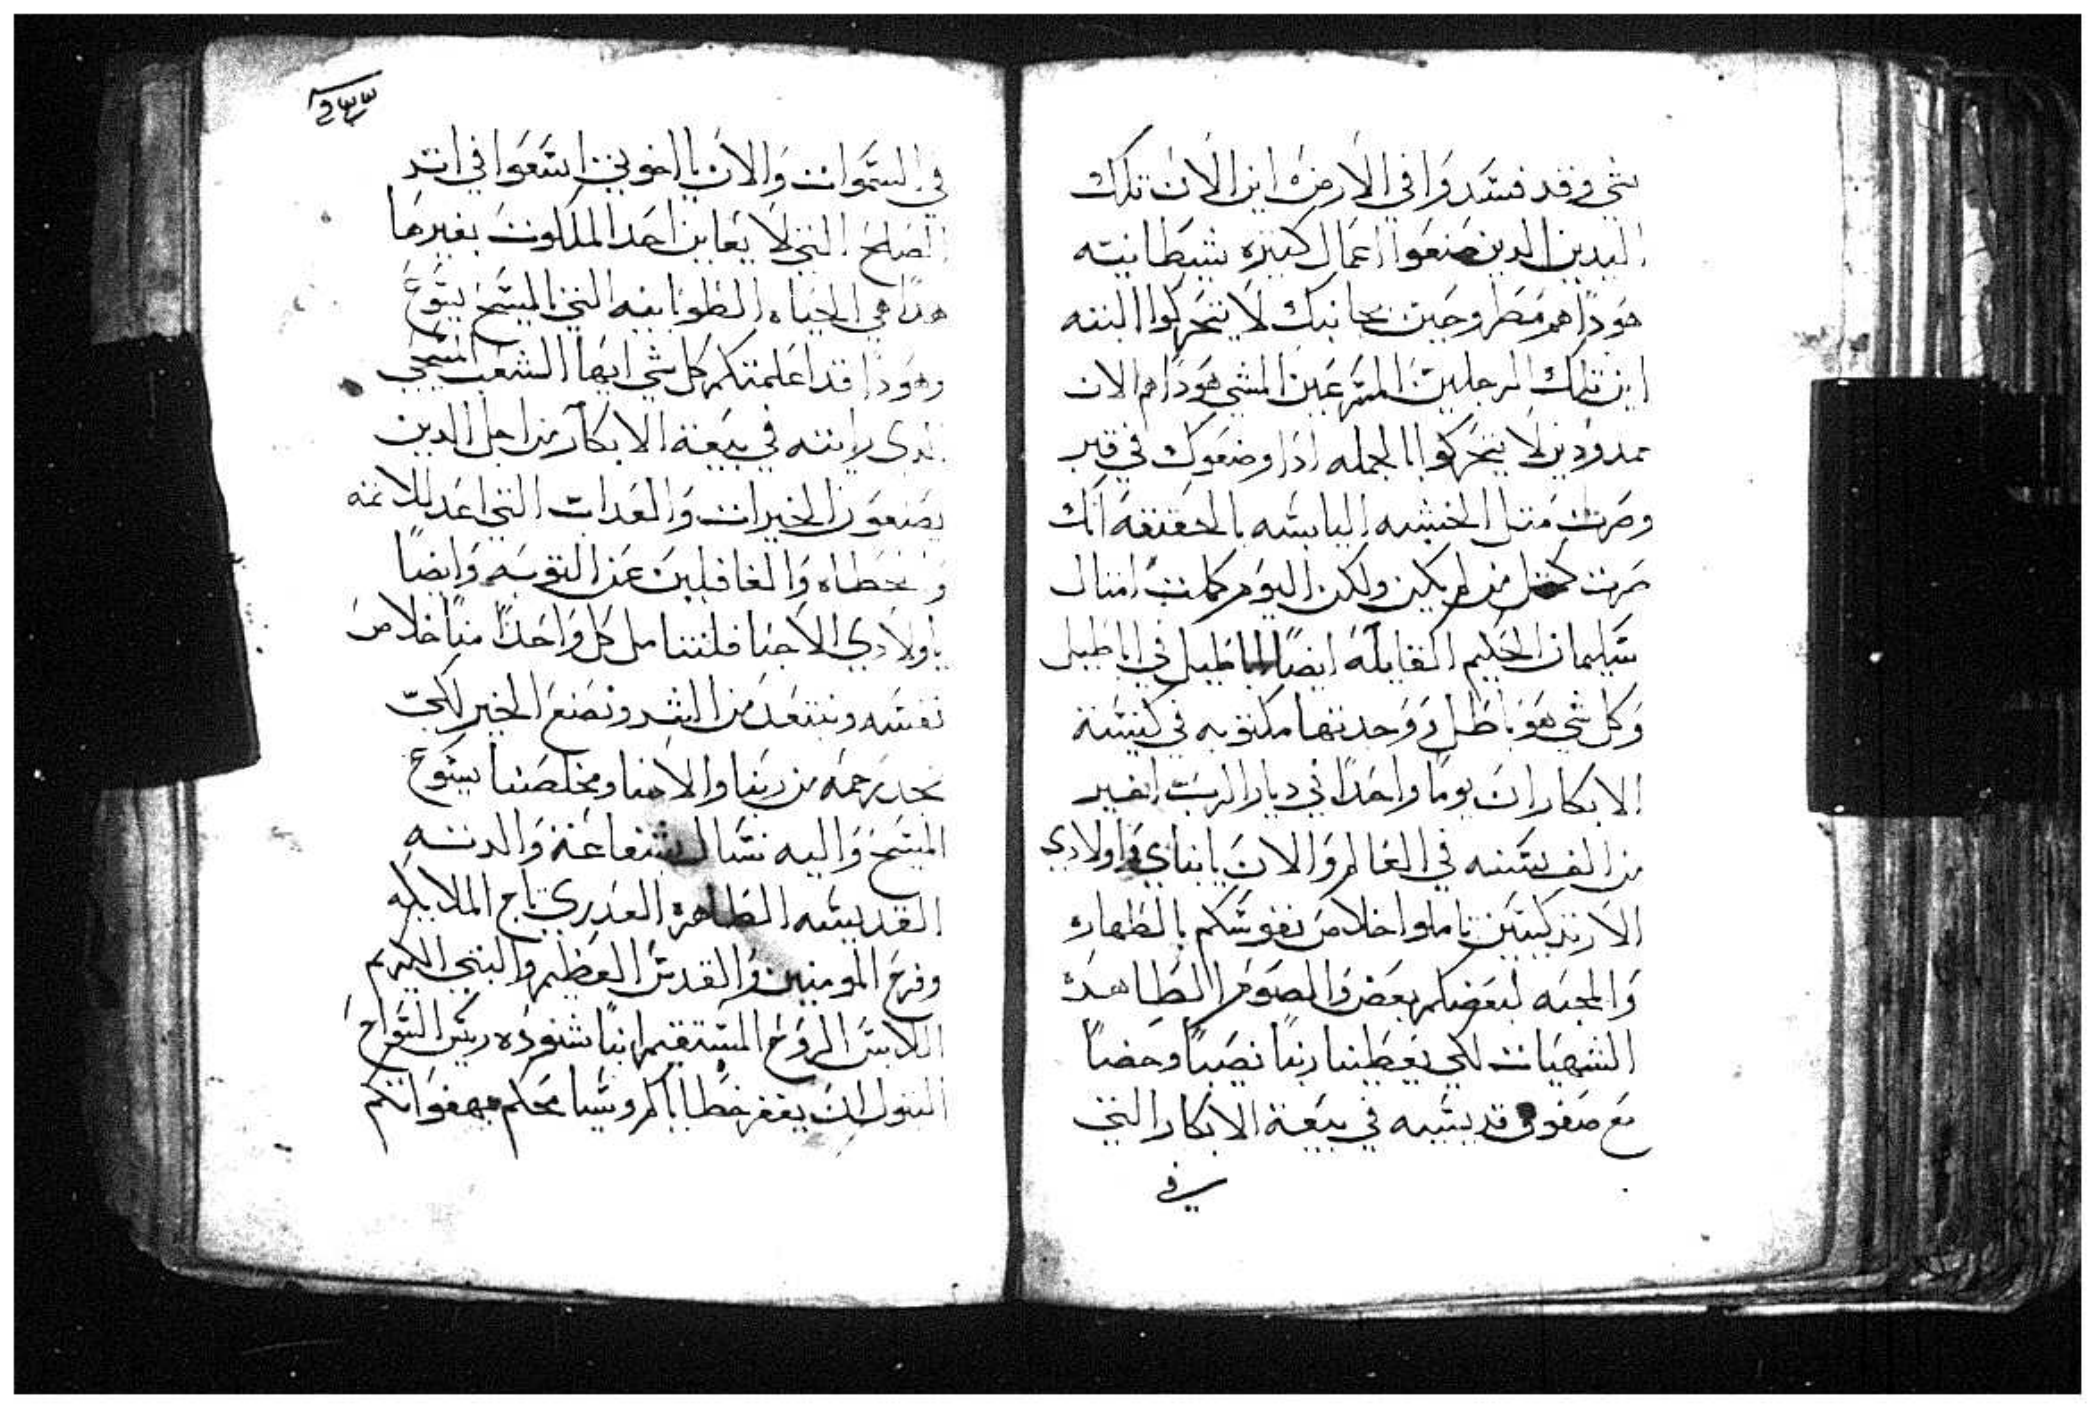 شي وقد فسدوا في الارض اين الان تلك
اليدين الدين صنعوا اعمال كثيره شيطانيه
هودا هم مطروحين بجانبك لا يتحركوا البته
اين تلك الرجلين المسرعين المشي هودا هم الان
ممدودين لا يتحركوا بالجمله ادا وضعوك في قبر
وصرت متل الخشبه اليابسه بالحقيقه انك
صرت كمتل من لم يكن ولكن اليوم كملت امتال
سليمان الحكيم القايله ايضا اباطيل في اباطيل
وكل شي هو باطل ووجدتها مكتوبه في كنيسة
الابكار ان يوما واحدا في ديار الرب اخير
من الف سنه في العالم والان يا ابناي واولادي
الارتدكسين تاملوا خلاص نفوسكم بالطهاره
والمحبه لبعضكم بعض والصوم الطاهر
الشهيات لكي يعطينا ربنا نصيبا وحضا
مع صفوف قديسيه في بيعة الابكار التي
في
في السموات والان يا اخوتي اسعوا في اتر
الصلح التي لا يعاين احد الملكوت بغيرها
هدا هي الحياه الطوبانيه التي بالمسيح يسوع
وهودا قد اعلمتكم كل شي ايها الشعب المسيحي
الدي رايته في بيعة الابكار من اجل الدين
يصنعون الخيرات والعدات التي اعد للاتمه
والخطاه والغافلين عن التوبه وايضا
يا اولادي الاحبا فلنتامل كل واحدا منا خلاص
نفسه ونبتعد من الشر ونصنع الخير لكي
نجد رحمه من ربنا والاهنا ومخلصنا يسوع
المسيح واليه نسال بشفاعة والدته
القديسه الطاهره العدري تاج الملايكه
وفرح المومنين والقديس العظيم والنبي الكريم
اللابس الروح المستقيم انبا شنوده ريس السواح
المتوحدين ان يغفر خطاياكم ويسامحكم بهفواتكم